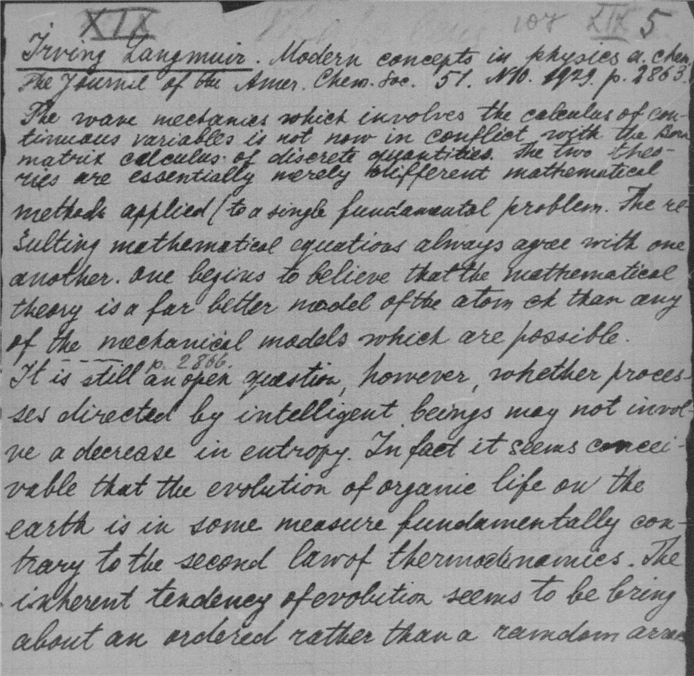 XIX 107 XIX 5
Irving Langmuir. Modern concepts in physics a. chem.
The Journal of the Amer. Chem. Soc. 51. N10. 1929. p. 2863.
The wave mechanics which involves the calculus of con-
tinuous variables is not now in conflict with the Born
matrix calculus of discrete quantities. The two theo-
ries are essentially merely different mathematical
methods applied (to a single fundamental problem. The re-
sulting mathematical equations always agree with one
another. One begins to believe that the mathematical
theory is a far better model of the atom than any
of the mechanical models which are possible.
p. 2866.
It is still an open question, however, whether proces-
ses directed by intelligent beings may not invol-
ve a decrease in entropy. In fact it seems concei-
vable that the evolution of organic life on the
earth is in some measure fundamentally con-
trary to the second law of thermodinamics. The
inherent tendency of evolution seems to be bring
about an ordered rather than a ramdom arran